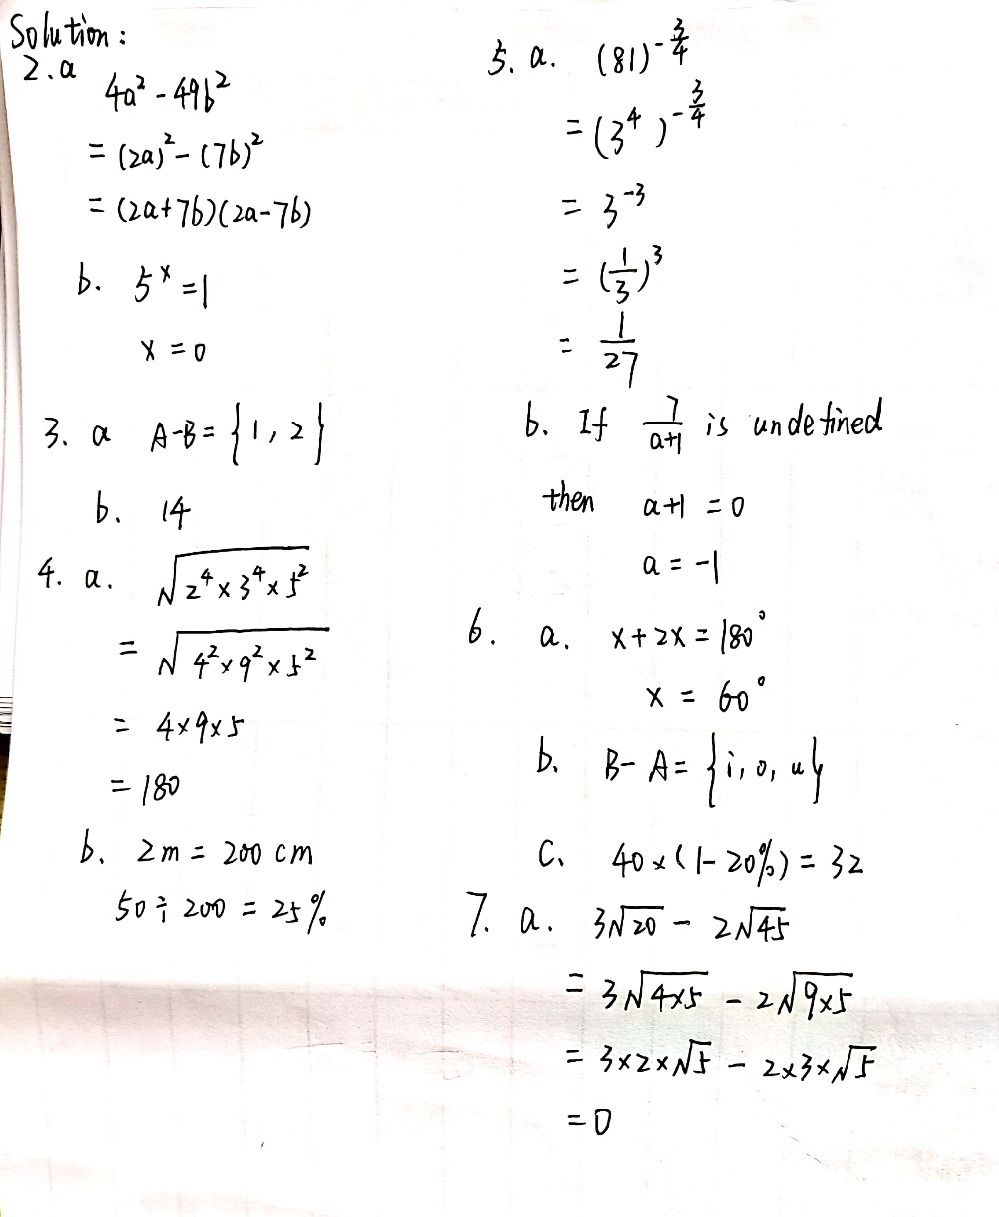 Solution:
2.a
4a² - 49b²
= (2a)² - (7b)²
= (2a+7b)(2a-7b)
b. 5ˣ = 1
x = 0
3. a A-B = {1, 2}
b. 14
4. a. √(2⁴×3⁴×5²)
= √(4²×9²×5²)
= 4×9×5
= 180
b. 2m = 200 cm
50 ÷ 200 = 25%
5. a. (81)^(-3/4)
= (3⁴)^(-3/4)
= 3⁻³
= (1/3)³
= 1/27
b. If 7/(a+1) is undefined
then a+1 = 0
a = -1
6. a. x + 2x = 180°
x = 60°
b. B - A = {i, o, u}
C. 40×(1-20%) = 32
7. a. 3√20 - 2√45
= 3√(4×5) - 2√(9×5)
= 3×2×√5 - 2×3×√5
= 0